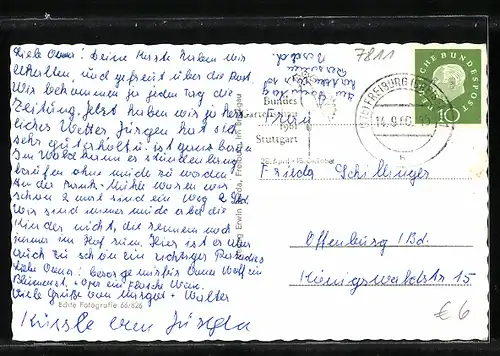 Liebe Oma! Deine Karte haben wir
erhalten, und gefreut über die Post.
Wir bekommen ja jeden Tag die
Zeitung. Jetzt haben wir ja herr
liches Wetter. Jürgen hat sich
sehr gut erholt, ist ganz braun
Im Wald kann er stundenlang
laufen ohne müde zu werden
An der Mühle waren wir
schon 2 mal sind ein Weg 2 Std.
Wir sind immer müde aber die
Kinder nicht, die rennen noch
immer im Hof rum. Hier ist es aber
auch zu schön ein richtiges Paradies
Liebe Oma! besorge mir für Oma Wolf ein
Blumenst. + Opa ein Flasche Wein.
Viele Grüße von Margot + Walter
Küssle von Jürgen
Echte Fotografie 66/826
Verlag Erwin Freiburg im Breisgau
7811
Bundes
Gartenschau
1961
Stuttgart
28. April - 15. Oktober
FREIBURG
14.9.60
DEUTSCHE BUNDESPOST
10
Frau
Frieda Schillinger
Offenburg /Bd.
Königswaldstr 15
€ 6